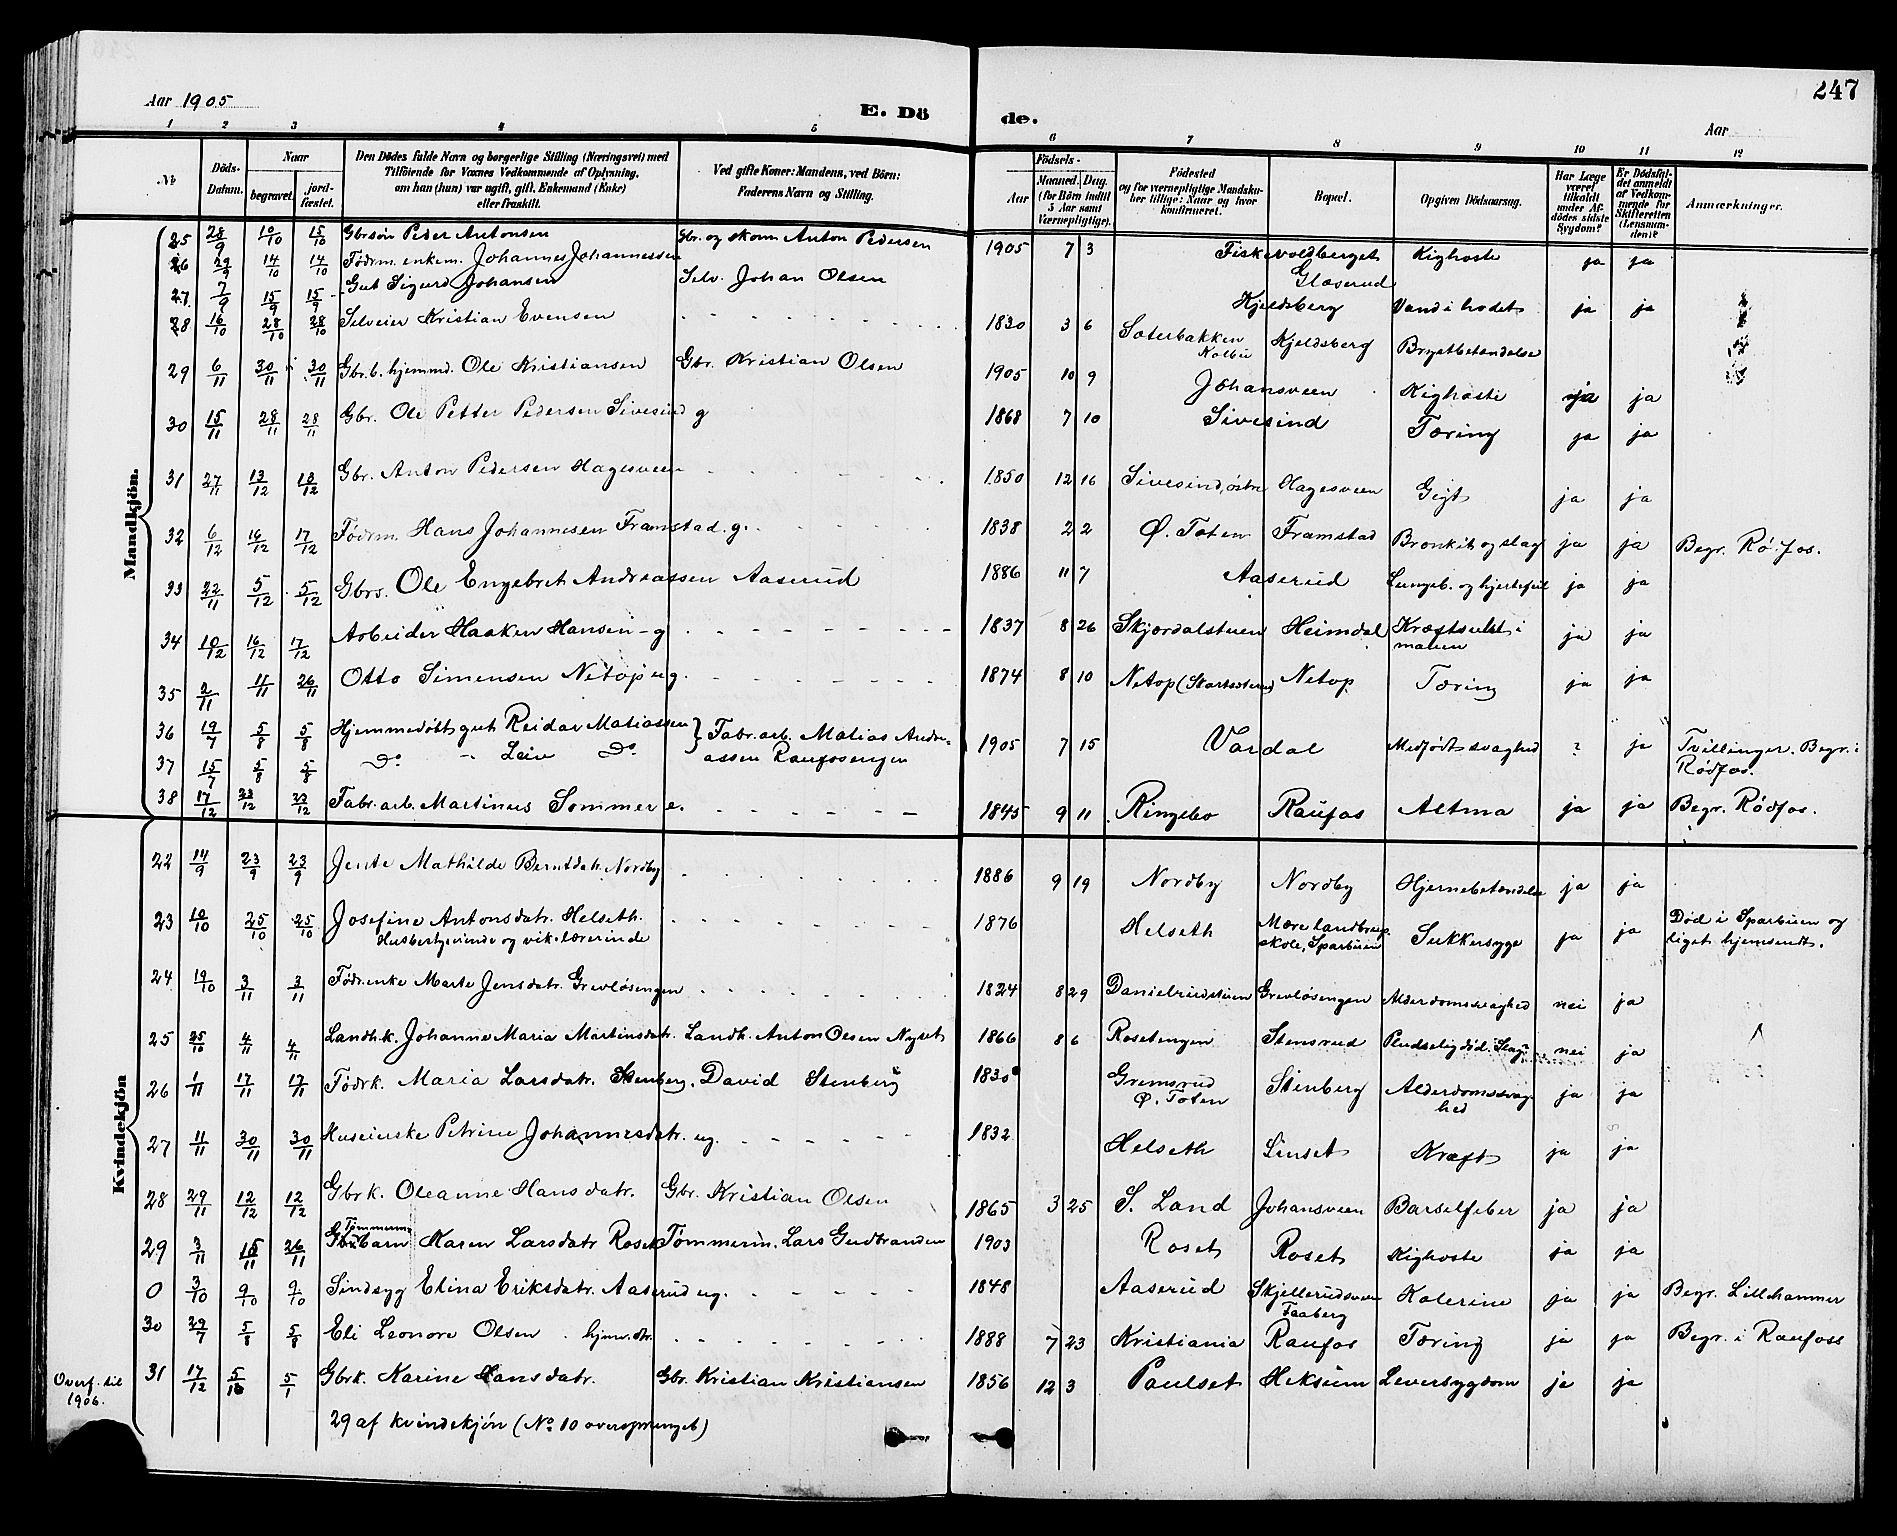 247
Aar 1905
E. Dö de.
Aar
1 2 3 4 5 6 7 8 9 10 11 12
№
Döds-Datum.
Naar
begravet.
jord-fæstet.
Den Dödes fulde Navn og borgerlige Stilling (Næringsvei) med Tilföiende for Voxnes Vedkommende af Oplysning, om han (hun) var ugift, gift, Enkemand (Enke) eller fraskilt.
Ved gifte Koner: Mandens, ved Börn: Faderens Navn og Stilling.
Födsels-
Aar
Maaned. Dag.
(for Börn indtil 5 Aar samt Værnepligtige).
Födested og for værnepligtige Mandsku-ber tillige: Naar og hvor konfirmeret.
Bopæl.
Opgiven Dödsaarsag.
Har Læge været tilkaldt under Af-dödes sidste Sygdom?
Er Dödsfal-det anmeldt af Vedkom-mende for Skifteretten (Lensman-den)?
Anmærkninger.
Mandkjön.
25 28/9 10/10 15/10 Gbrsön Peder Antonsen Gbr. og skom Anton Pedersen 1905 7 3 Fiskevoldberget Kighoste ja ja
26 29/9 14/10 14/10 Födrm. enkem. Johannes Johannessen Glæserud
27 7/9 15/9 15/9 Gut Sigurd Johansen Selv. Johan Olsen Kjeldsberg Vand i hodet ja ja
28 16/10 28/10 28/10 Selveier Kristian Evensen 1830 3 6 Sæterbakken Kolbu Kjeldsberg Brystbetændelse
29 6/11 30/11 30/11 Gbr.b. hjemmd. Ole Kristiansen Gbr. Kristian Olsen 1905 10 9 Johansveen Kighoste ja ja
30 15/11 28/11 28/11 Gbr. Ole Petter Pedersen Sivesind g 1868 7 10 Sivesind Tæring ja ja
31 27/11 13/12 13/12 Gbr. Anton Pedersen Hagesveen 1850 12 16 Sivesind, östre Hagesveen Gigt ja ja
32 6/12 16/12 17/12 Födrm. Hans Johannesen Framstad. g. 1838 2 2 Ø. Toten Framstad Bronkit og slag ja ja Begr. Rö.fos.
33 22/11 5/12 5/12 Gbrs. Ole Engebret Andreassen Aaserud 1886 11 7 Aaserud Lungeb. og hjertefeil ja ja
34 10/12 16/12 17/12 Arbeider Haaken Hansen - g 1837 8 26 Skjerdalstuen Heimdal Kræftsvulst i maven ja ja
35 2/11 11/11 26/11 Otto Simensen Netop ug. 1874 8 10 Netop Netop Tæring ja ja
36 19/7 5/8 5/8 Hjemmedöbt gut Reidar Matiassen } Fabr. arb. Matias Andre-assen Raufosengen 1905 7 15 Vardal Medfödt svaghed ? ja Tvillinger. Begr. i Rödfos.
37 15/7 5/8 5/8 Do - Leiv Do
38 17/12 23/12 23/12 Fabr. arb. Martinus Sommer e. 1845 9 11 Ringebo Raufos Astma ja ja Begr. Rödfos.
Kvindekjön
22 14/9 23/9 23/9 Jente Mathilde Berntdatr. Nordby 1886 9 19 Nordby Nordby Hjernebetændelse ja ja
23 10/10 25/10 25/10 Josefine Antonsdatr. Helseth. 1876 Helseth Mære landbrug-skole, Sparbuen Sukkersyge ja ja Död i Sparbuen og liget hjemsendt.
Husbestyrerinde og vik. lærerinde
24 19/10 3/11 3/11 Födr.enke Marte Jensdatr. Grevlösengen 1824 8 29 Danielrudstuen Grevlösengen Alderdomssvaghed nei ja
25 25/10 4/11 4/11 Landh.k. Johanne Maria Martinsdatr. Landh. Anton Olsen Nyset 1866 8 6 Rosetengen Stensrud Pludselig död. Slag? nei ja
26 1/11 17/11 17/11 Födrk. Maria Larsdatr. Stenberg. David Stenberg 1830 Gremsrud Ø. Toten Stenberg Alderdomssvag-hed ja ja
27 11/11 30/11 30/11 Huseierske Petrine Johannesdatr. ug. 1832 Helseth Linset Kræft ja ja
28 29/11 12/12 12/12 Gbrk. Oleanne Hansdatr. Gbr. Kristian Olsen 1865 3 25 S. Land Johansveen Barselfeber ja ja
29 3/11 15/11 26/11 Tömmerm barn Karen Larsdatr Roset Tömmerm. Lars Gudbrandsen 1903 Roset Roset Kighoste ja ja
0 3/10 9/10 9/10 Sindsyg Elina Eriksdatr. Aaserud ug. 1848 Aaserud Skjellerudsveen Faaberg Kolerine ja ja Begr. Lillehammer
30 29/7 5/8 5/8 Eli Leonore Olsen . hjem. dtr. 1888 7 23 Kristiania Raufos Tæring ja ja Begr. i Raufoss
Overf. til 1906.
31 17/12 5/1 5/1 Gbrk. Karine Hansdatr. Gbr. Kristian Kristiansen 1856 12 3 Paulset Heksum Leversygdom ja ja
29 af kvindekjön (No. 10 oversprunget)